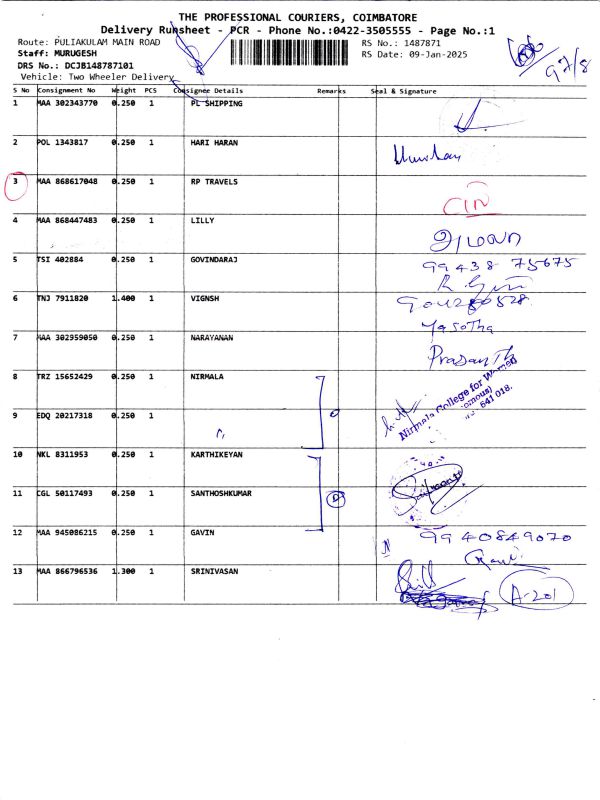 THE PROFESSIONAL COURIERS, COIMBATORE
Delivery Runsheet - PCR - Phone No.:0422-3505555 - Page No.:1
Route: PULIAKULAM MAIN ROAD
Staff: MURUGESH
DRS No.: DCJB148787101
Vehicle: Two Wheeler Delivery
RS No.: 1487871
RS Date: 09-Jan-2025
97/8
S No Consignment No Weight PCS Consignee Details Remarks Seal & Signature
1 MAA 302343770 0.250 1 PL SHIPPING
2 POL 1343817 0.250 1 HARI HARAN
3 MAA 868617048 0.250 1 RP TRAVELS
4 MAA 868447483 0.250 1 LILLY அமலா
5 TSI 402884 0.250 1 GOVINDARAJ 99438 75675
6 TNJ 7911820 1.400 1 VIGNSH
Yasotha
7 MAA 302959050 0.250 1 NARAYANAN Prasanth
8 TRZ 15652429 0.250 1 NIRMALA
Nirmala College for Women
641 018.
9 EDQ 20217318 0.250 1 "
10 NKL 8311953 0.250 1 KARTHIKEYAN
11 CGL 50117493 0.250 1 SANTHOSHKUMAR
12 MAA 945086215 0.250 1 GAVIN N 9940849070
13 MAA 866796536 1.300 1 SRINIVASAN A-201